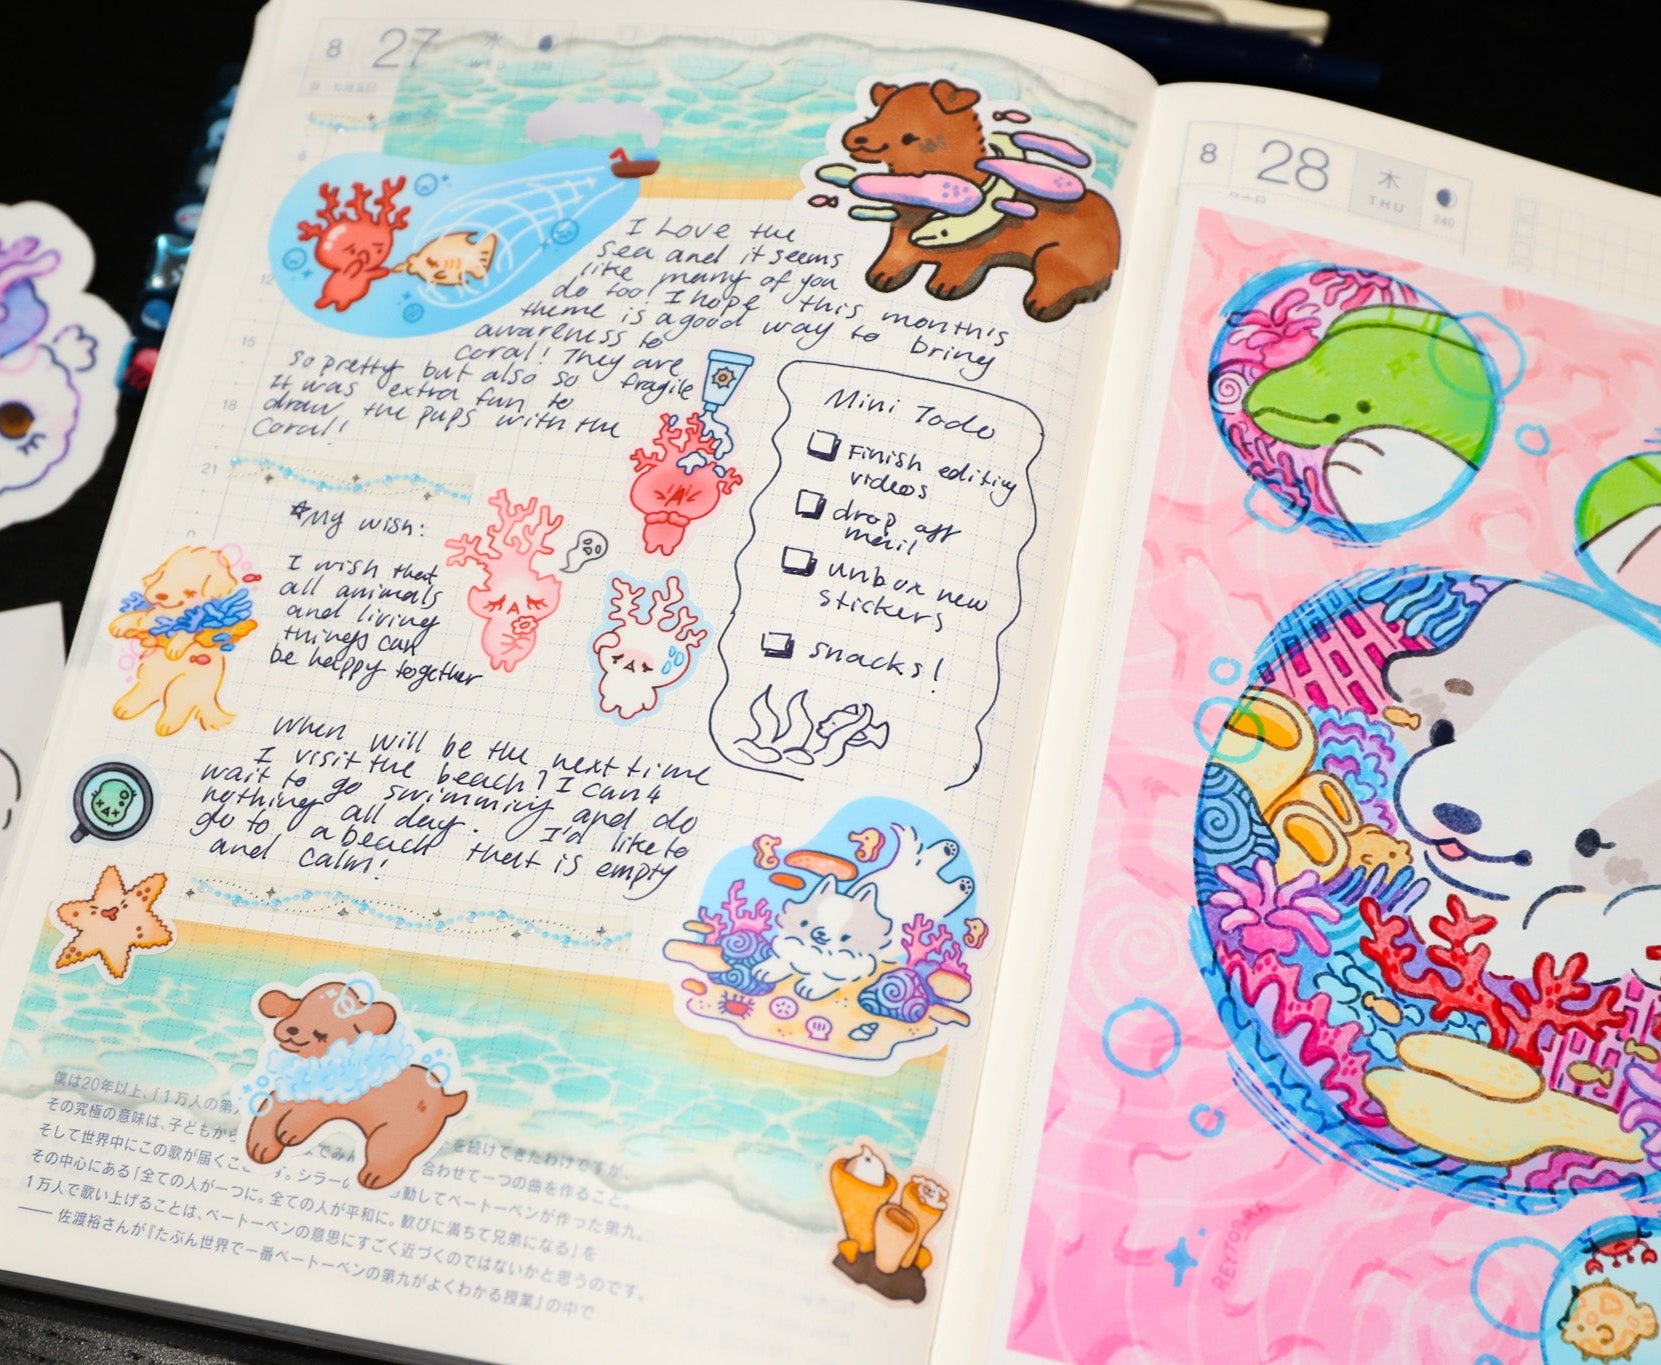 8 27
I Love the
sea and it seems
like many of you
do too! I hope this month's
theme is a good way to bring
awareness to
coral! They are
so pretty but also so fragile
It was extra fun to
draw the pups with the
coral!
Mini Todo
Finish editing
videos
drop off
mail
unbox new
stickers
snacks!
*My wish:
I wish that
all animals
and living
things can
be happy together
When will be the next time
I visit the beach? I can't
wait to go swimming and do
nothing all day. I'd like to
go to a beach that is empty
and calm!
12
15
18
21
僕は20年以上、「1万人の第
その究極の意味は、子どもから
を続けてきたわけですが、
そして世界中にこの歌が届くこ
合わせて一つの曲を作ること。
す。シラー
動してベートーベンが作った第九。
その中心にある「全ての人が一つに。全ての人が平和に。歓びに満ちて兄弟になる」を
1万人で歌い上げることは、ベートーベンの意思にすごく近づくのではないかと思うのです。
── 佐渡裕さんが『たぶん世界で一番ベートーベンの第九がよくわかる授業』の中で
8 28 木
THU 240